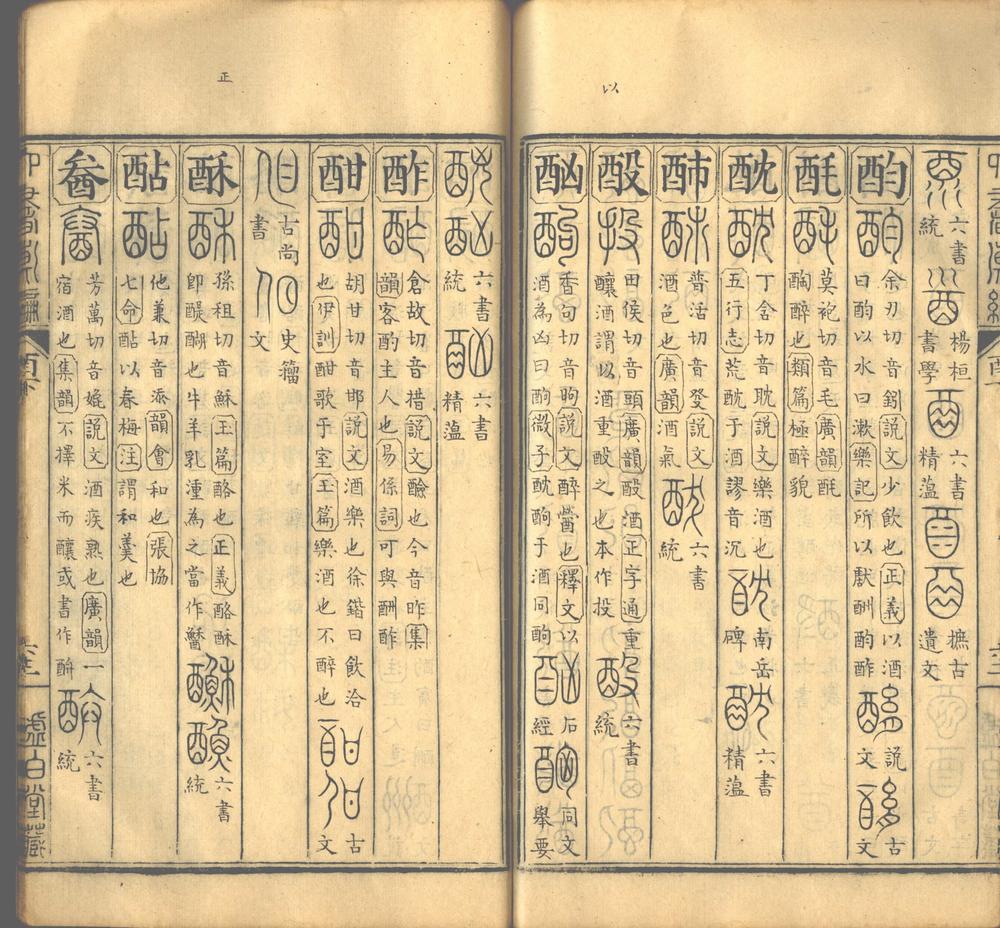 以
六書統 楊桓書學 六書精薀 摭古遺文
酌 余刃切音釰說文少飲也正義以酒曰酌以水曰漱樂記所以獻酬酌酢 說文 古文
酕 莫袍切音毛廣韻酕醄醉也類篇極醉貌
酖 丁含切音耽說文樂酒也五行志荒酖于酒謬音沉 南岳碑 六書精薀
普活切音癹說文酒色也廣韻酒氣 六書統
酘 田侯切音頭廣韻酘酒正字通重釀酒謂以酒重酘之也本作投 六書統
香句切音昫說文醉醟也釋文以酒為凶曰酗微子酖酗于酒同酗 石經 同文舉要
正
六書統 六書精薀
酢 倉故切音措說文醶也今音昨集韻客酌主人也易係詞可與酬酢
酣 胡甘切音邯說文酒樂也徐鍇曰飲洽也伊訓酣歌于室玉篇樂酒也不醉也 古文
古尚書 史籀文
酥 孫租切音穌玉篇酪也正義酪酥卽醍醐也牛羊乳湩為之當作 六書統
酟 他兼切音添韻會和也張協七命酟以春梅注謂和羹也
芳萬切音娩說文酒疾熟也廣韻一宿酒也集韻不擇米而釀或書作 六書統
虛白堂藏